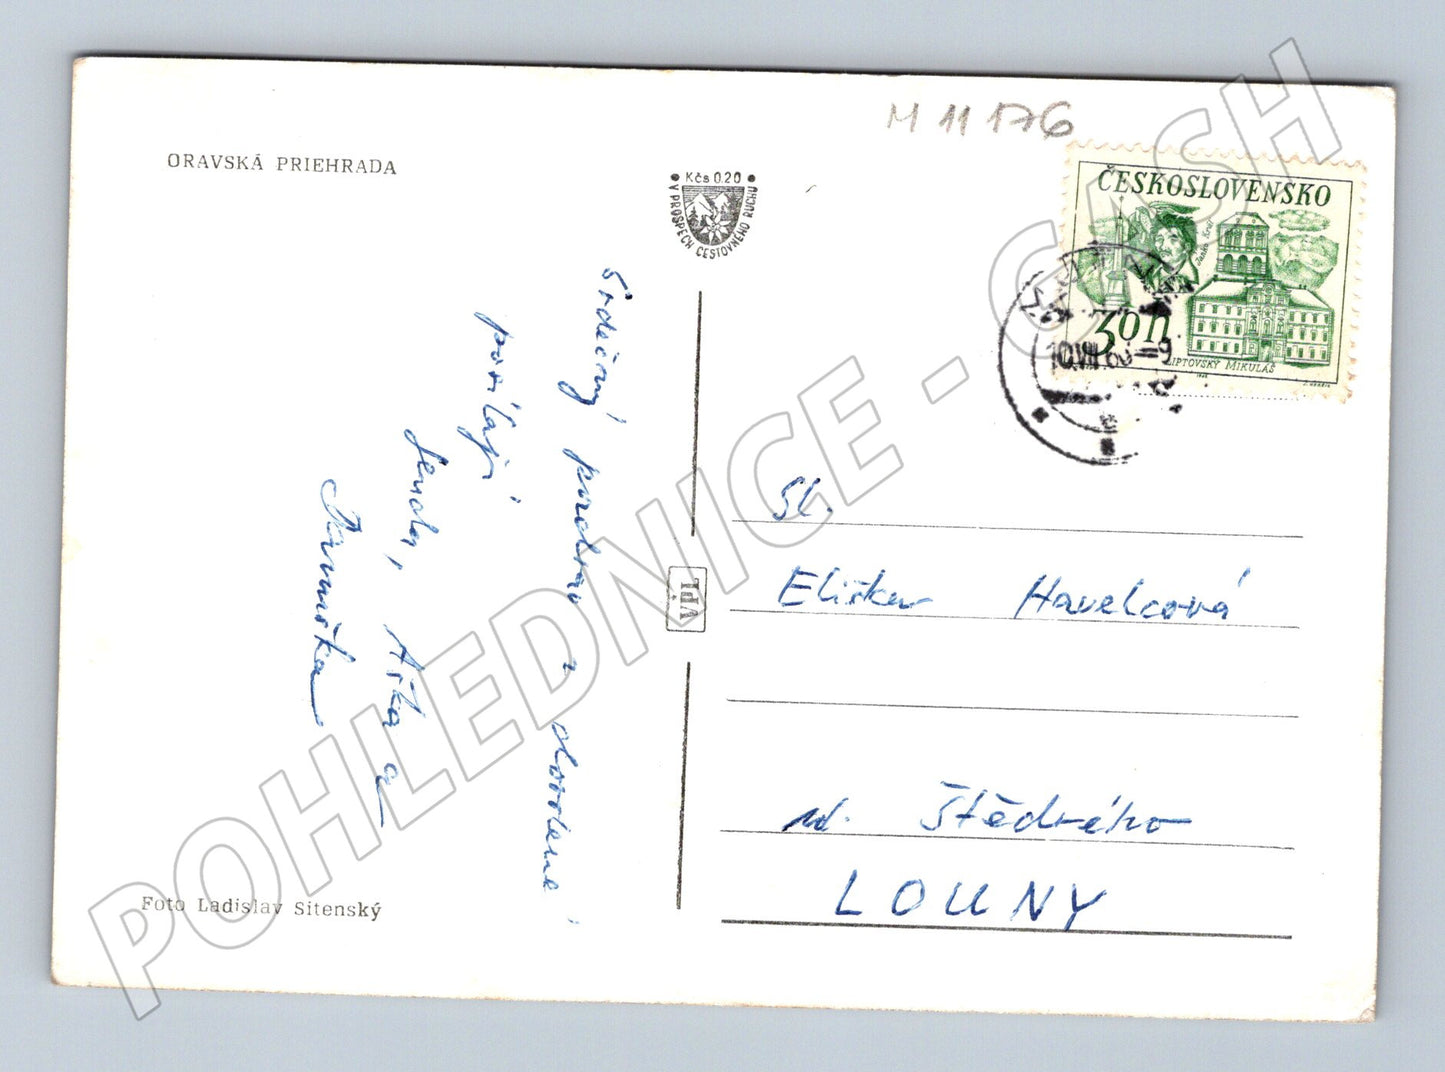 M 11 176
ORAVSKÁ PRIEHRADA
Kčs 0.20
V PROSPECH CESTOVNÉHO RUCHU
ČESKOSLOVENSKO
Janko Kráľ
30h
LIPTOVSKÝ MIKULÁŠ
10.VIII.69-9
Srdečný pozdrav z dovolené
posílají
Lenda, Aška a
Jarmuška
VpL
Sl.
Eliška Havelcová
ul. Štědrého
LOUNY
Foto Ladislav Sitenský
POHLEDNICE - CASH